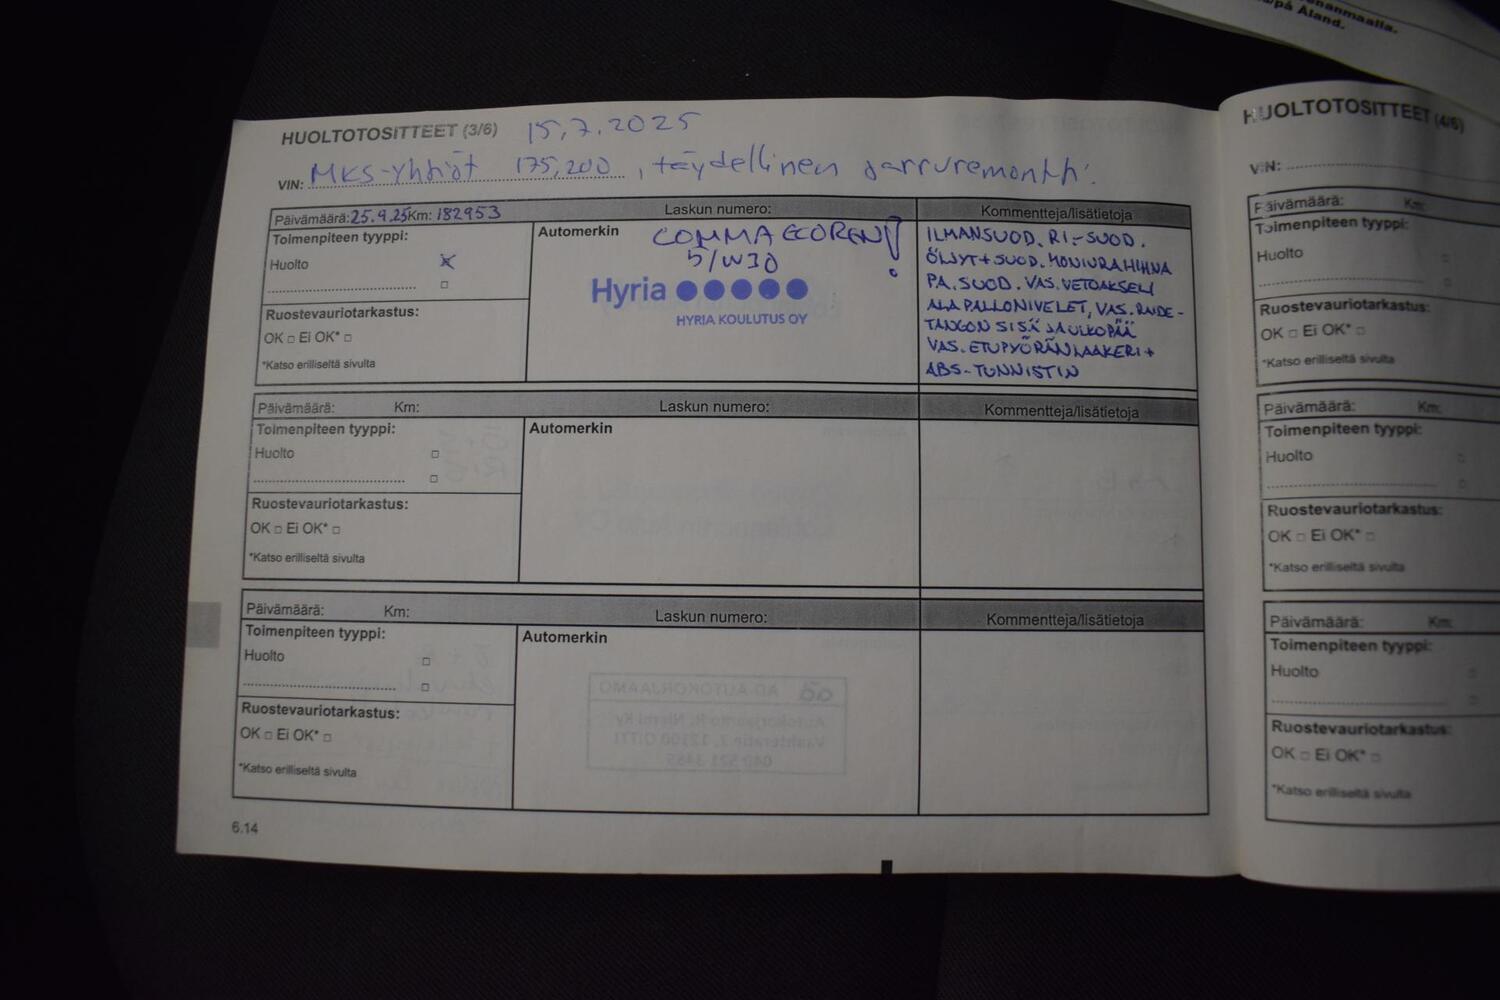 enanmaalla.
/på Åland.
HUOLTOTOSITTEET (3/6) 15.7.2025
VIN: MKS-Yhtiöt 175,200, täydellinen jarruremontti.
Päivämäärä: 25.9.25 Km: 182953 Laskun numero: Kommentteja/lisätietoja
Toimenpiteen tyyppi:
Huolto
Ruostevauriotarkastus:
OK □ Ei OK* □
*Katso erilliseltä sivulta
Automerkin
COMMA ECOREN!
5/W30
Hyria
HYRIA KOULUTUS OY
ILMANSUOD. RI-SUOD.
ÖLJYT+SUOD. MONIURAHIHNA
PA. SUOD. VAS. VETOAKSELI
ALAPALLONIVELET, VAS. RAIDE-
TANGON SISÄ JA ULKOPÄÄ
VAS. ETUPYÖRÄNLAAKERI+
ABS-TUNNISTIN
Päivämäärä: Km: Laskun numero: Kommentteja/lisätietoja
Toimenpiteen tyyppi:
Huolto □
□
Ruostevauriotarkastus:
OK □ Ei OK* □
*Katso erilliseltä sivulta
Automerkin
Päivämäärä: Km: Laskun numero: Kommentteja/lisätietoja
Toimenpiteen tyyppi:
Huolto □
□
Ruostevauriotarkastus:
OK □ Ei OK* □
*Katso erilliseltä sivulta
Automerkin
6.14
HUOLTOTOSITTEET (4/6)
VIN:
Päivämäärä: Km:
Toimenpiteen tyyppi:
Huolto □
□
Ruostevauriotarkastus:
OK □ Ei OK* □
*Katso erilliseltä sivulta
Päivämäärä: Km:
Toimenpiteen tyyppi:
Huolto □
□
Ruostevauriotarkastus:
OK □ Ei OK* □
*Katso erilliseltä sivulta
Päivämäärä: Km:
Toimenpiteen tyyppi:
Huolto □
□
Ruostevauriotarkastus:
OK □ Ei OK* □
*Katso erilliseltä sivulta